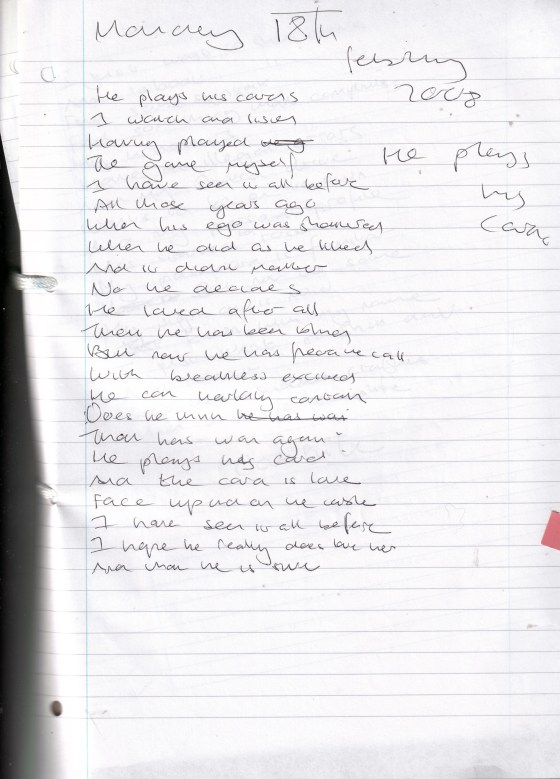 Monday 18th
February
2008
He plays
his
Cards
He plays his cards
I watch and listen
Having played
The game myself
I have seen it all before
All those years ago
When his ego was shattered
When he did as he liked
And it didnt matter
No he decides
He loved after all
Then he has been
But now he has
With breathless excited
He can hardly contain
Does he think he has won
That has won again
He plays his card
And the card is love
Face up on the table
I have seen it all before
I hope he really does love her
And that he is sure